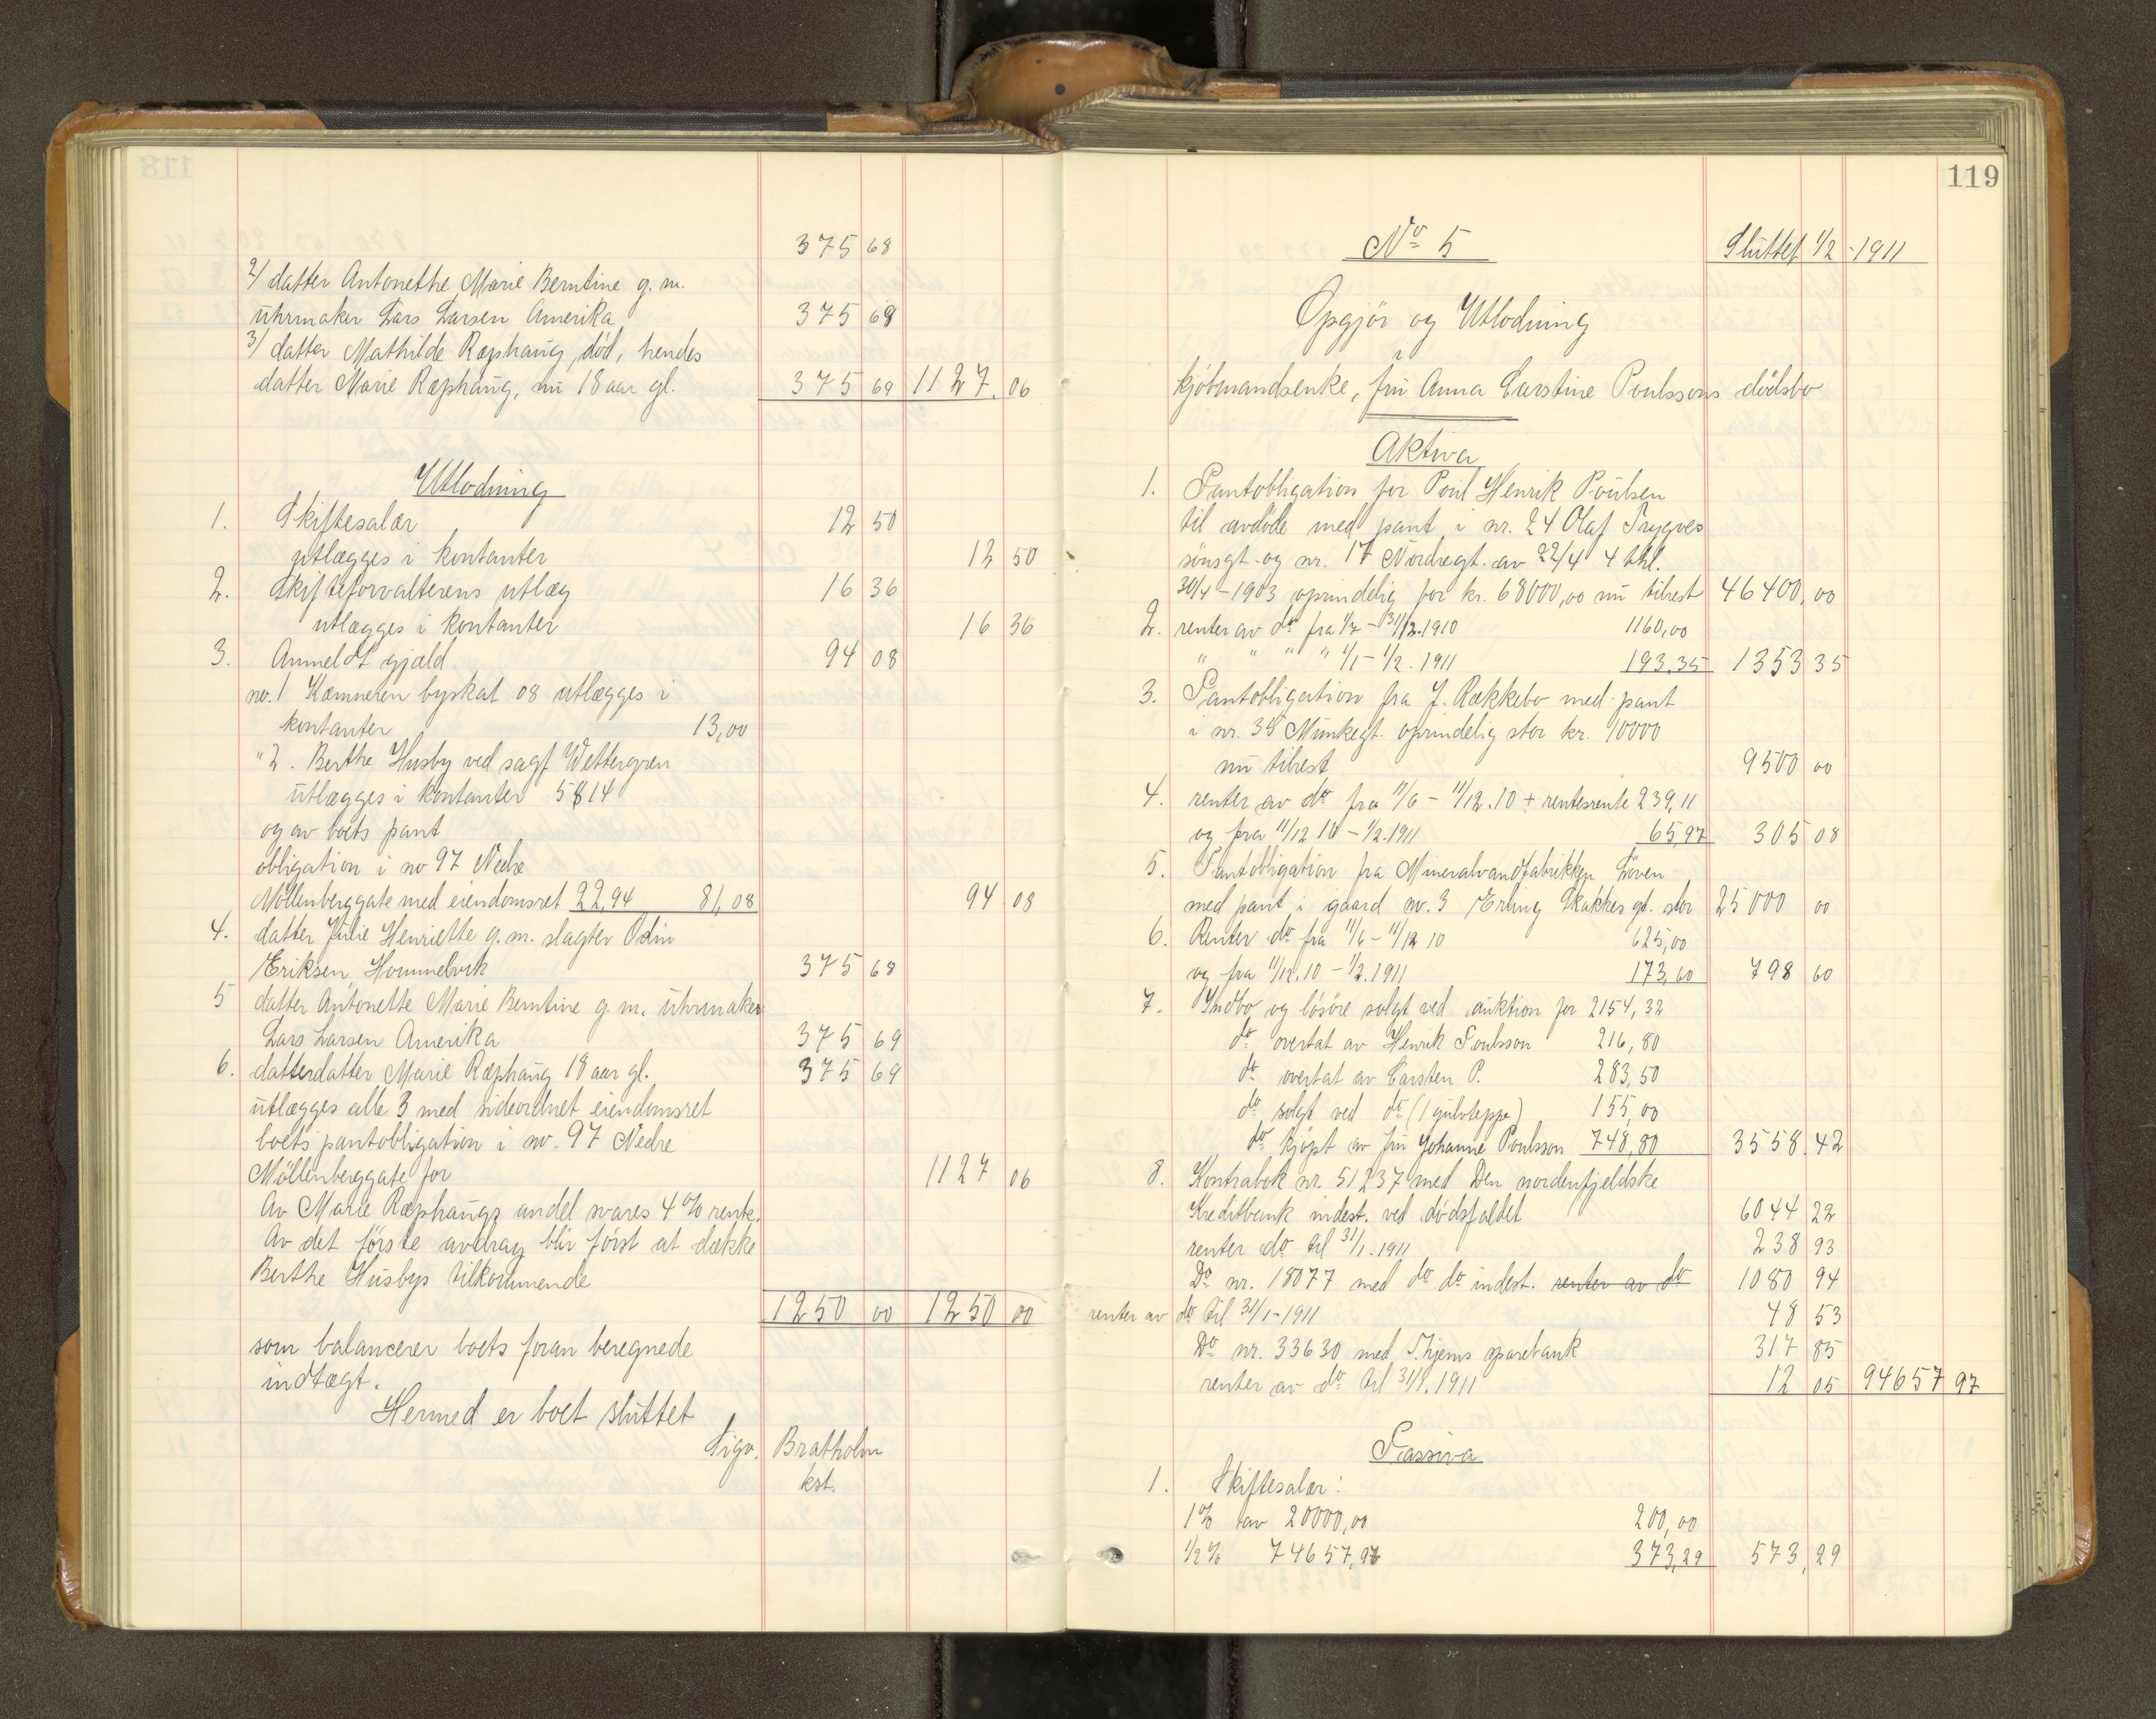 118
375 68
2/ datter Antonethe Marie Berntine g. m.
uhrmaker Lars Larsen Amerika 375 69
3/ datter Mathilde Ræphaug, död, hendes
datter Marie Ræphaug, nu 18 aar gl. 375 69 1127.06
Utlodning
1. Skiftesalær 12 50
utlægges i kontanter 12 50
2. Skifteforvalterens utlæg 16 36
utlægges i kontanter 16 36
3. Anmeldt gjæld 94 08
no. 1 Kæmneren byskat 08 utlægges i
kontanter 13,00
" 2. Berthe Husby ved sagf Wettergren
utlægges i kontanter 5814
og av boets pant
obligation i no 97 Nedre
Möllenberggate med eiendomsret 22,94 81,08 94 08
4. datter Julie Henriette g. m. slagter Odin
Eriksen, Hommelvik 375 68
5 datter Antonette Marie Berntine g. m. uhrmaker
Lars Larsen Amerika 375 69
6. datterdatter Marie Ræphaug 18 aar gl. 375 69
utlægges alle 3 med sideordnet eiendomsret
boets pantobligation i no. 97 Nedre
Möllenberggate for 1127 06
Av Marie Ræphaugs andel svares 4 % rente.
Av det förste avdrag blir först at dække
Berthe Husbys tilkommende
1250 00 1250 00
som balancerer boets foran beregnede
indtægt.
Hermed er boet sluttet
Sigv. Bratholm
kst.
119
No 5 Sluttet 1/2 - 1911
Opgjör og Utlodning
i
kjöbmandsenke, fru Anna Carstine Poulssons dödsbo
Aktiva
1. Pantobligation for Poul Henrik Poulsen
til avdöde med pant i nr. 24 Olaf Trygves
sönsgt. og nr. 17 Nordregt. av 22/4 4 thl.
30/4 - 1903 oprindelig for kr. 68000,00 nu tilrest 46400,00
2. renter av do fra 1/7 - 31/12.1910 1160,00
" " " " 1/1 - 1/2. 1911 193,35 1353 35
3. Pantobligation fra J. Rækkebo med pant
i nr. 35 Munkegt. oprindelig stor kr. 10000
nu tilrest 9500 00
4. renter av do fra 11/6 - 11/12.10 + rentesrente 239,11
og fra 11/12 10 - 1/2.1911 65,97 305 08
5. Pantobligation fra Mineralvandfabrikken Löven
med pant i gaard nr. 3 Erling Skakkes gt. stor 25000 00
6. Renter do fra 11/6 - 11/12 10 625,00
og fra 11/12.10 - 1/2.1911 173,60 798 60
7. Indbo og lösöre solgt ved auktion for 2154,32
do overtat av Henrik Poulsson 216,80
do overtat av Carsten P. 283,50
do solgt ved do (1 gulvteppe) 155,00
do kjöpt av fru Johanne Poulsson 748,80 3558.42
8. Kontrabok nr. 51237 med Den nordenfjeldske
Kreditbank indest. ved dödsfaldet 6044 22
renter do til 31/1.1911 238 93
Do nr. 18077 med do do indest. renter av do 1080 94
renter av do til 31/1-1911 48 53
Do nr. 33630 med T.hjems sparebank 317 85
renter av do til 31/1.1911 12 05 94657 97
Passiva
1. Skiftesalær:
1% av 20000,00 200,00
1/2 % 74657,97 373,29 573,29